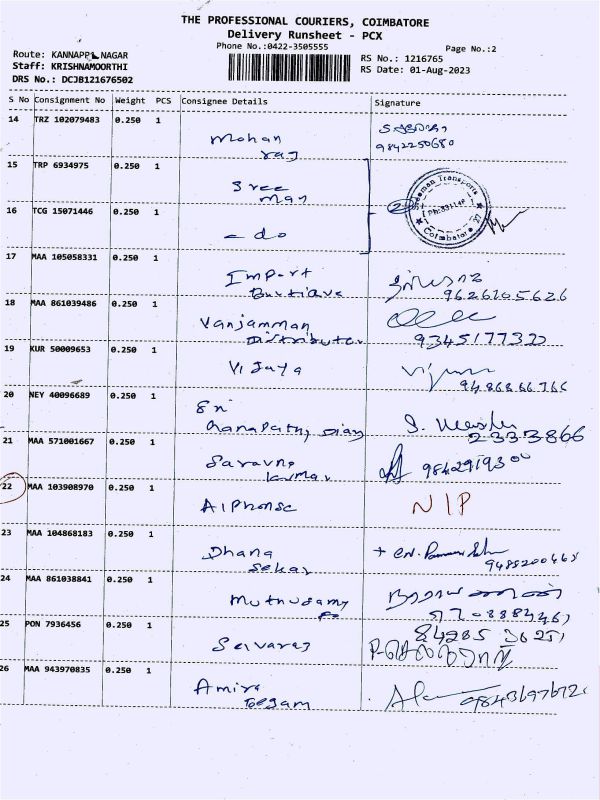 THE PROFESSIONAL COURIERS, COIMBATORE
Delivery Runsheet - PCX
Phone No.:0422-3505555
Page No.:2
Route: KANNAPPA NAGAR
Staff: KRISHNAMOORTHI
DRS No.: DCJB121676502
RS No.: 1216765
RS Date: 01-Aug-2023
S No Consignment No Weight PCS Consignee Details Signature
14 TRZ 102079483 0.250 1
Mohan
raj
9842250680
15 TRP 6934975 0.250 1
Sree
man
Transports
Coimbatore
16 TCG 15071446 0.250 1
- do
17 MAA 105058331 0.250 1
Import
Boutique
9626105626
18 MAA 861039486 0.250 1
Vanjamman
Distributer
9345177320
19 KUR 50009653 0.250 1
Vijaya
9486866766
20 NEY 40096689 0.250 1
Sri
2333866
21 MAA 571001667 0.250 1
Saravna
kumar
9842919300
22 MAA 103908970 0.250 1
Alphonse
NIP
23 MAA 104868183 0.250 1
Dhana
Sekar
24 MAA 861038841 0.250 1
Muthusamy
25 PON 7936456 0.250 1
Selvaraj
26 MAA 943970835 0.250 1
Amira
Beegam